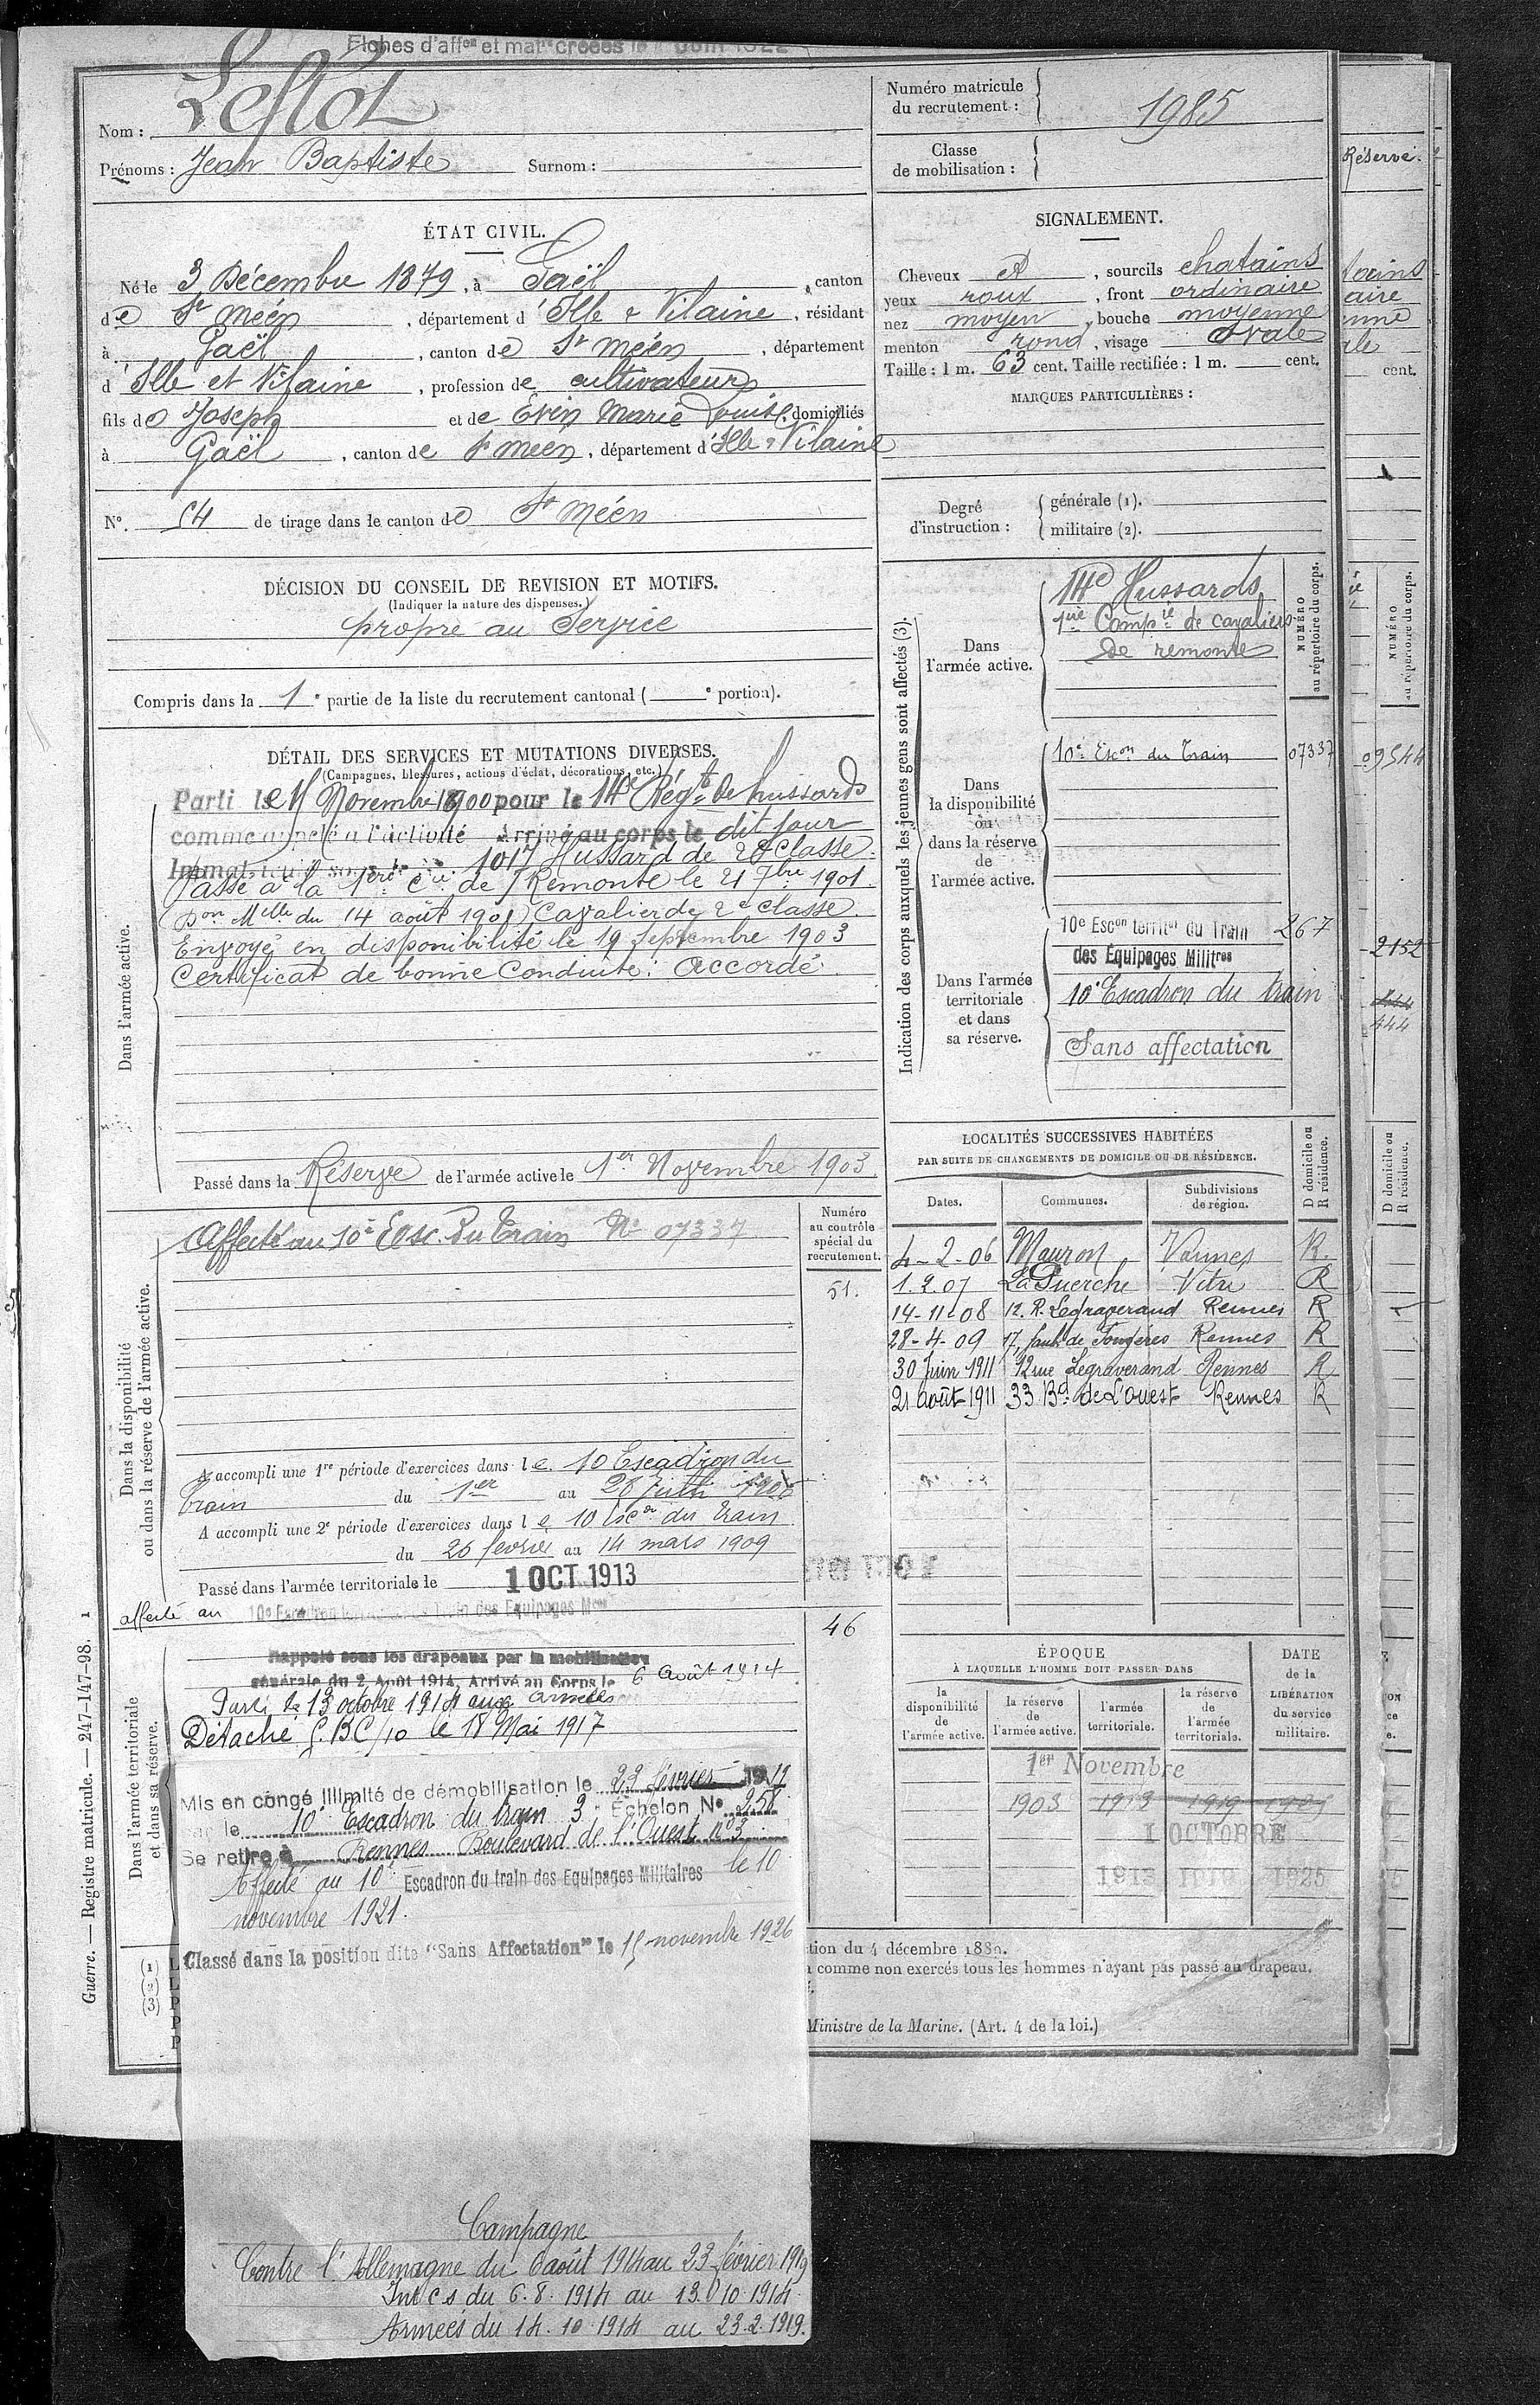 Fiches d'affon et matle créées le Juin 1922
Nom : Leflot
Prénoms : Jean Baptiste Surnom :
Numéro matricule
du recrutement : 1985
Classe
de mobilisation :
ÉTAT CIVIL.
Né le 3 Décembre 1879, à Gaël, canton
de St Méen, département d'Ille & Vilaine, résidant
à Gaël, canton de St Méen, département
d'Ille et Vilaine, profession de cultivateur
fils de Joseph et de Evin Marie Louise, domiciliés
à Gaël, canton de St Meen, département d'Ille & Vilaine
No. 54 de tirage dans le canton de St Méen
SIGNALEMENT.
Cheveux et, sourcils chatains
yeux roux, front ordinaire
nez moyen, bouche moyenne
menton rond, visage ovale
Taille : 1 m. 63 cent. Taille rectifiée : 1 m. cent.
MARQUES PARTICULIÈRES :
Degré
d'instruction :
générale (1).
militaire (2).
DÉCISION DU CONSEIL DE REVISION ET MOTIFS.
(Indiquer la nature des dispenses.)
propre au Service
Compris dans la 1e partie de la liste du recrutement cantonal ( e portion).
DÉTAIL DES SERVICES ET MUTATIONS DIVERSES.
(Campagnes, blessures, actions d'éclat, décorations, etc.)
Dans l'armée active.
Parti le Novembre 1900 pour le 14e Régt de hussards
comme appelé à l'activité Arrivé au corps le dit jour
1017 Hussard de 2e Classe.
Passé à la 1ère Cie de Remonte le 21 7bre 1901.
(Don Melle du 14 août 1901) Cavalier de 2e classe.
Envoyé en disponibilité le 19 Septembre 1903
Certificat de bonne Conduite : Accordé.
Passé dans la Réserve de l'armée active le 1er Novembre 1903.
Indication des corps auxquels les jeunes gens sont affectés (3).
NUMÉRO
au répertoire du corps.
Dans
l'armée active.
14e Hussards
1ère Compie de cavaliers
de remonte
Dans
la disponibilité
ou
dans la réserve
de
l'armée active.
10e Escon du Train 07337
Dans l'armée
territoriale
et dans
sa réserve.
10e Escon territal du Train 267
des Equipages Militres
10e Escadron du train
Sans affectation
Dans la disponibilité
ou dans la réserve de l'armée active.
Numéro
au contrôle
spécial du
recrutement.
51.
Affecté au 10e Esc. du Train No 07337
A accompli une 1re période d'exercices dans le 10 Escadron du
train du 1er au 28
A accompli une 2e période d'exercices dans le 10 Escon du train
du 26 fevrier au 14 mars 1909
Passé dans l'armée territoriale le 1 OCT 1913
affecté au 10e Escadron Train des Equipages
46
LOCALITÉS SUCCESSIVES HABITÉES
PAR SUITE DE CHANGEMENTS DE DOMICILE OU DE RÉSIDENCE.
Dates. Communes. Subdivisions
de région. D domicile ou
R résidence.
4-2-06 Mauron Vannes R.
1.2.07 La Guerche Vitré R
14-11-08 12. R. Legraverand Rennes R
28-4-09 17, faub. de Fougères Rennes R
30 Juin 1911 12 rue Legraverand Rennes R
21 août 1911 33 Bd de L'ouest Rennes R
Dans l'armée territoriale
et dans sa réserve.
Rappelé sous les drapeaux par la mobilisation
générale du 2 Août 1914, Arrivé au Corps le 6 Août 1914
Parti le 13 octobre 1914 aux armées
Détaché G.BC/10 le 18 Mai 1917
Mis en congé illimité de démobilisation le 23 février 1919
par le 10e Escadron du train 3e Echelon No 258
Se retire à Rennes Boulevard de l'Ouest no 3
Affecté au 10e Escadron du train des Equipages Militaires le 10
novembre 1921.
Classé dans la position dite "Sans Affectation" le 15 novembre 1926
ÉPOQUE
À LAQUELLE L'HOMME DOIT PASSER DANS
DATE
de la
LIBÉRATION
du service
militaire.
la
disponibilité
de
l'armée active.
la réserve
de
l'armée active.
l'armée
territoriale.
la réserve
de
l'armée
territoriale.
1er Novembre
1903 1913 1919
1 OCTOBRE
1913 1919 1925
(1)
(2)
(3)
tion du 4 décembre 1889.
comme non exercés tous les hommes n'ayant pas passé au drapeau.
Ministre de la Marine. (Art. 4 de la loi.)
Guerre. — Registre matricule. — 247-147-98. 1
Campagne
Contre l'Allemagne du 6 août 1914 au 23 février 1919
Int C s du 6.8.1914 au 13.10.1914.
Armées du 14.10.1914 au 23.2.1919.
Réserve.
cent.
NUMÉRO
au répertoire du corps.
09544
2152
444
D domicile ou
R résidence.